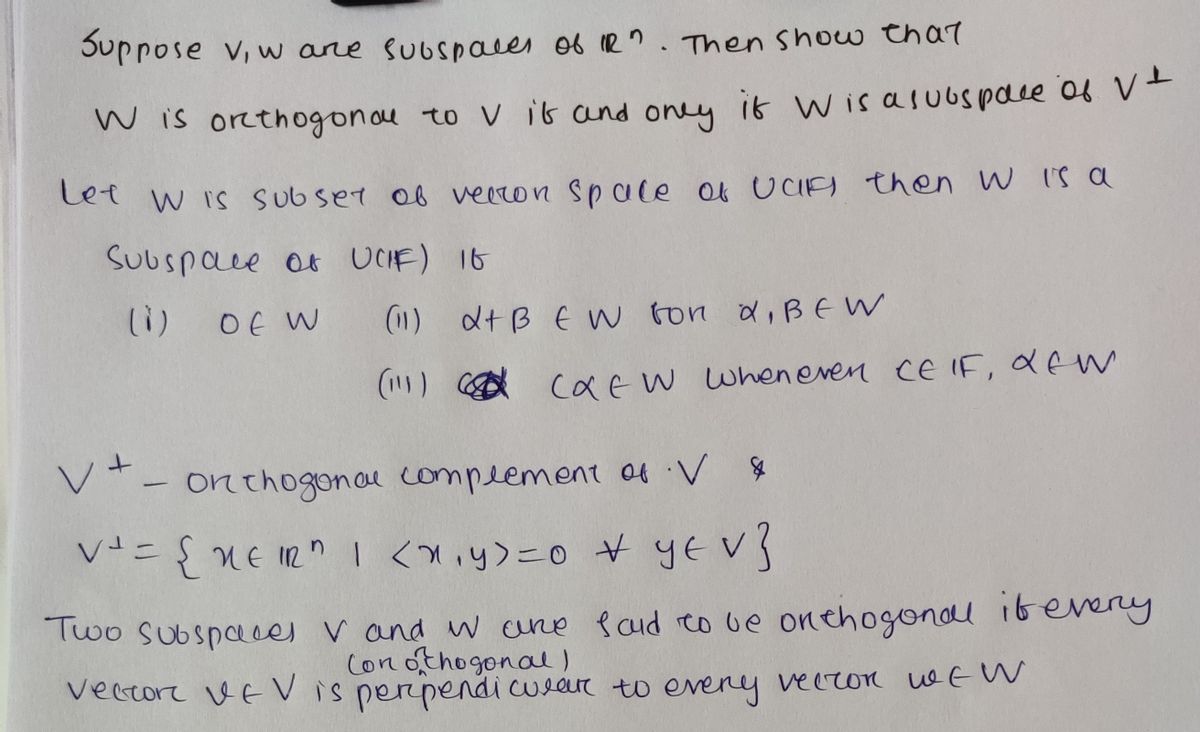 Suppose V, W are subspaces of ℝⁿ. Then show that
W is orthogonal to V if and only if W is a subspace of V⊥
Let W is subset of vector space of U(𝔽) then W is a
subspace of U(𝔽) if
(i) 0 ∈ W (ii) α+β ∈ W for α, β ∈ W
(iii) cα ∈ W whenever c ∈ 𝔽, α ∈ W
V⊥ - orthogonal complement of V &
V⊥ = { x ∈ ℝⁿ | <x, y> = 0 ∀ y ∈ V}
Two subspaces V and W are said to be orthogonal if every
(or othogonal)
vector v ∈ V is perpendicular to every vector w ∈ W